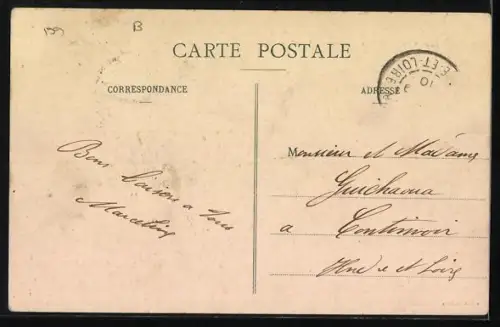 B
CARTE POSTALE
CORRESPONDANCE
ADRESSE
ET-LOIRE
10
Bons baisers a tous
Marceline
Monsieur et Madame
Guichaoua
a Continvoir
Indre et Loire